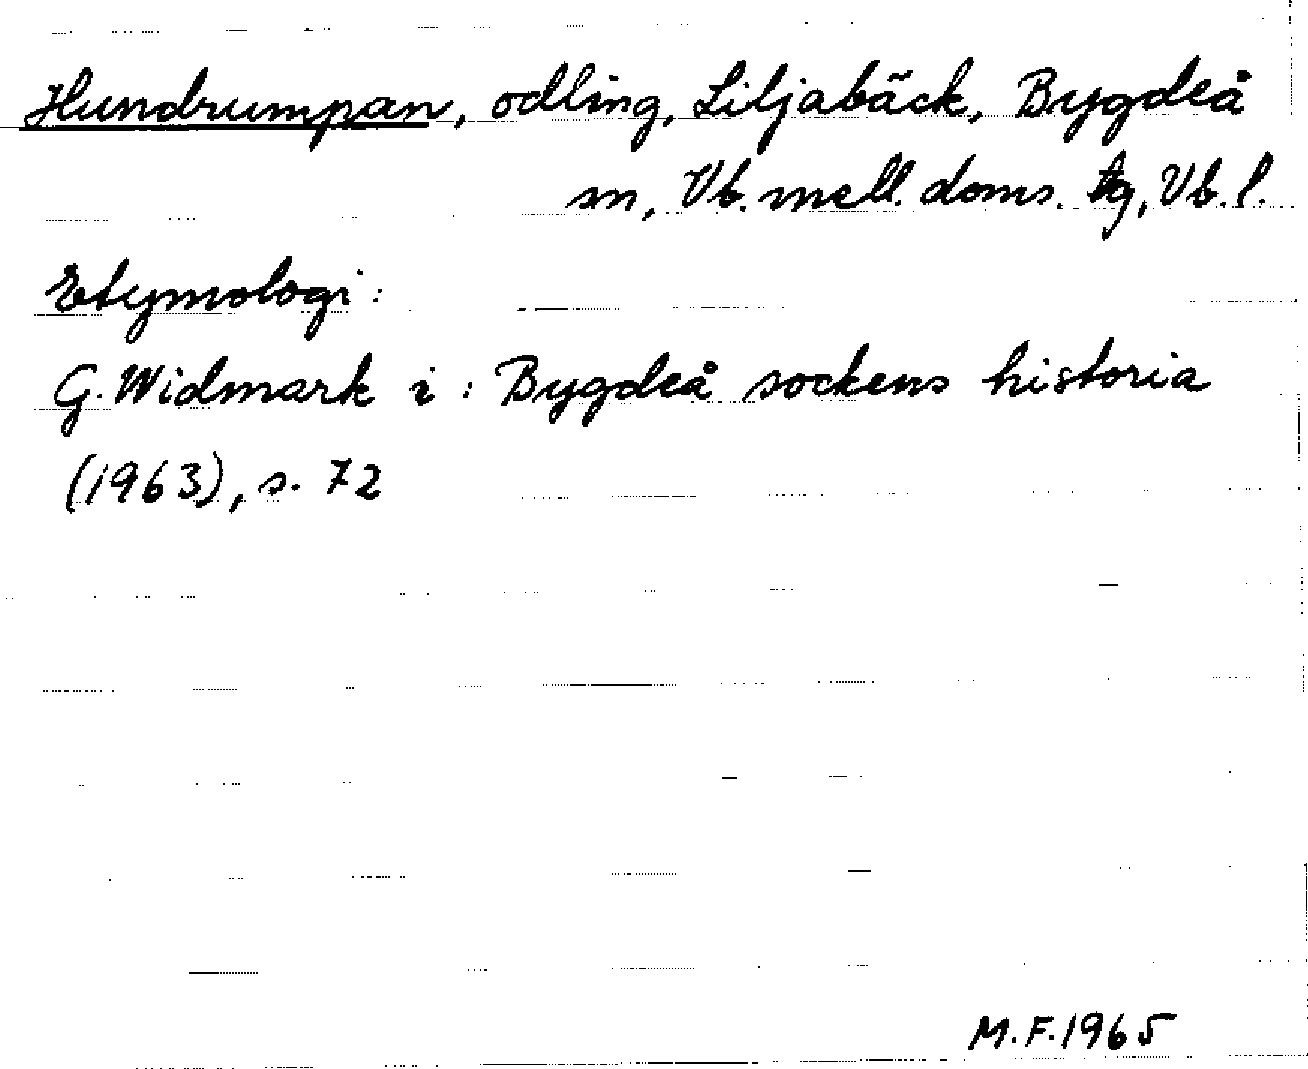 Hundrumpan, odling, Liljabäck, Bygdeå
sn, Vb. mell. doms. tg, Vb. l.
Etymologi:
G. Widmark i: Bygdeå sockens historia
(1963), s. 72
M.F. 1965